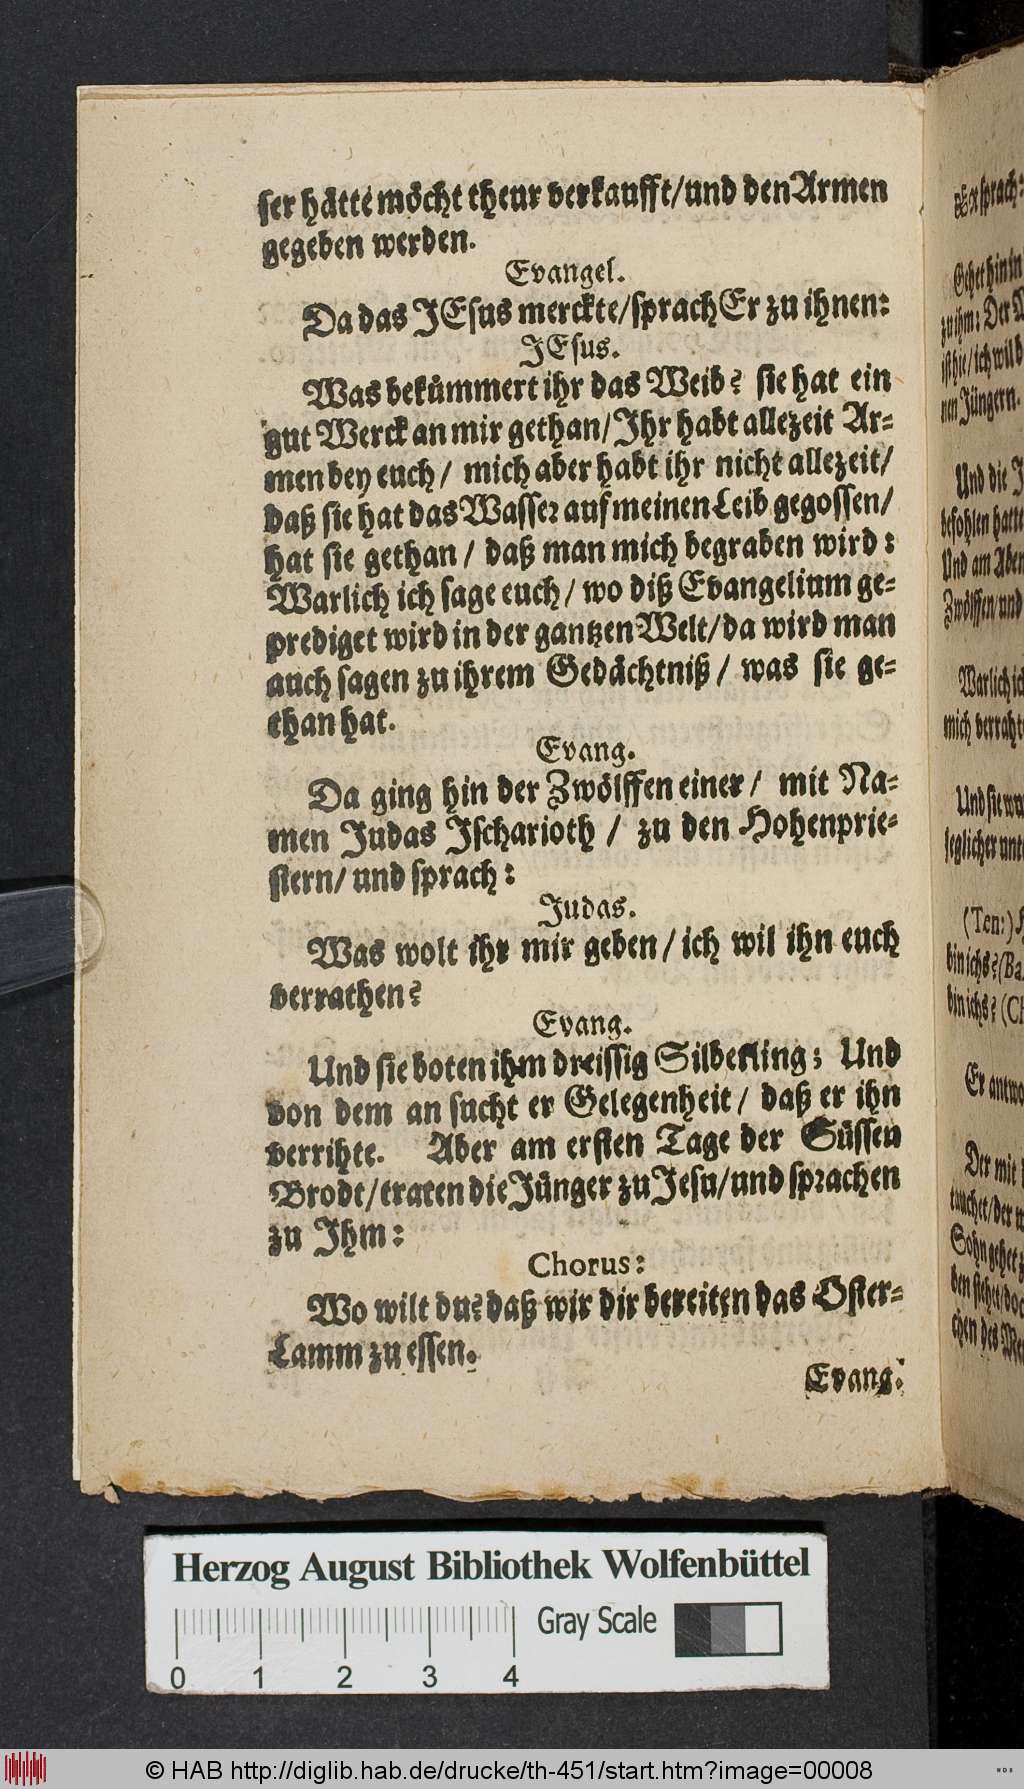 ser hätte möcht theur verkaufft/und den Armen
gegeben werden.
Evangel.
Da das JEsus merckte/sprach Er zu ihnen:
JEsus.
Was bekümmert ihr das Weib? sie hat ein
gut Werck an mir gethan/Ihr habt allezeit Ar-
men bey euch/ mich aber habt ihr nicht allezeit/
daß sie hat das Wasser auf meinen Leib gegossen/
hat sie gethan/ daß man mich begraben wird:
Warlich ich sage euch/ wo diß Evangelium ge-
prediget wird in der gantzen Welt/da wird man
auch sagen zu ihrem Gedächtniß/ was sie ge-
than hat.
Evang.
Da ging hin der Zwölffen einer/ mit Na-
men Judas Ischarioth / zu den Hohenprie-
stern/ und sprach:
Judas.
Was wolt ihr mir geben/ich wil ihn euch
verrathen?
Evang.
Und sie boten ihm dreissig Silberling; Und
von dem an sucht er Gelegenheit/ daß er ihn
verrihte. Aber am ersten Tage der Süssen
Brodt/traten die Jünger zu Jesu/und sprachen
zu Ihm:
Chorus:
Wo wilt du? daß wir dir bereiten das Oster-
Lamm zu essen.
Evang:
Er sprach:
Gehet hin in
zu ihm: Der
ist hie/ich wil
nen Jüngern.
Und die
befohlen hatte
Und am
Zwölffen/und
Warlich ich
mich
Und sie
jeglicher
(Ten:)
bin ichs?
bin ichs?
Er
Der mit
tauchet/der
Sohn gehet
den stehet/doch
chen des
Herzog August Bibliothek Wolfenbüttel
Gray Scale
0 1 2 3 4
© HAB http://diglib.hab.de/drucke/th-451/start.htm?image=00008